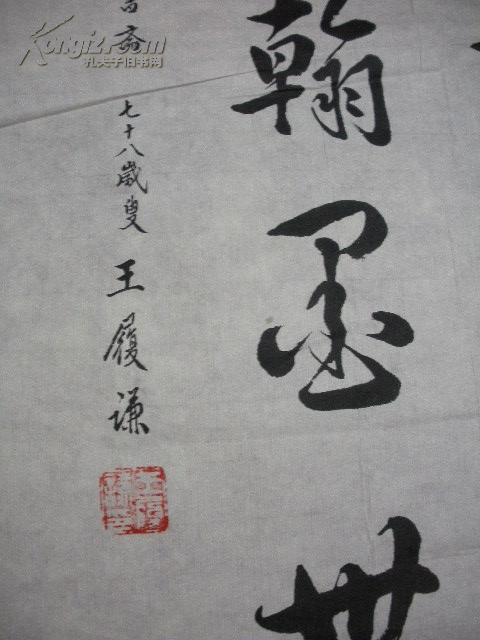 翰墨世
斋
七十八歲叟
王履谦
Kongfz.com
孔夫子旧书网